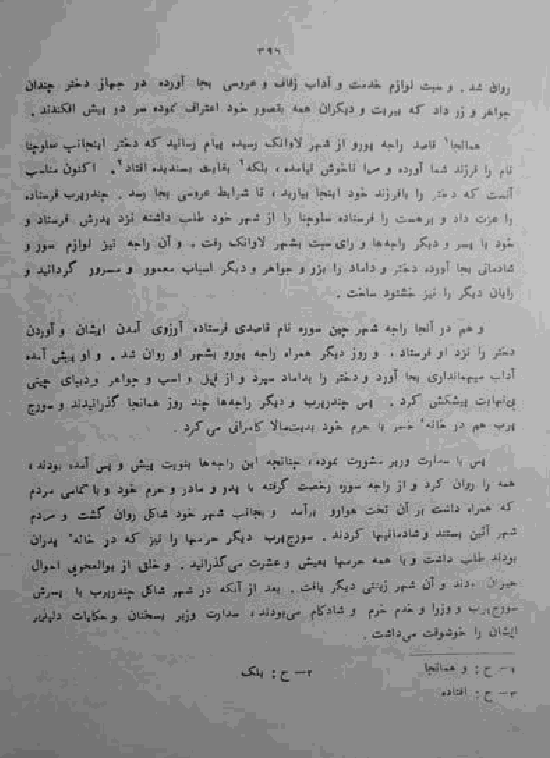 ۳۹۶
روان شد. و حیت لوازم خدمت و آداب زفاف و عروسی بجا آورده در جهاز دختر چندان
جواهر و زر داد که بیربت و دیگران همه بقصور خود اعتراف نموده سر در پیش افکندند.
همانجا۱ قاصد راجه پورو از شهر لاوانک رسیده پیام رسانید که دختر اینجانب سلوچنا
نام را فرزند شما آورده و مرا ناخوش نیامده، بلکه۲ بغایت پسندیده افتاد۳. اکنون مناسب
آنست که دختر را بافرزند خود اینجا بیارید، تا شرایط عروسی بجا رسد. چندرپرب فرستاده
را عزت داد و برهست را فرستاده سلوچنا را از شهر خود طلب داشته نزد پدرش فرستاد و
خود با پسر و دیگر راجه‌ها و رای حیت بشهر لاوانک رفت. و آن راجه نیز لوازم سور و
شادمانی بجا آورده دختر و داماد را بزر و جواهر و دیگر اسباب معمور و مسرور گردانید و
رایان دیگر را نیز خشنود ساخت.
و هم در آنجا راجه شهر چین سوره نام قاصدی فرستاده آرزوی آمدن ایشان و آوردن
دختر را نزد او فرستاد. و روز دیگر همراه راجه پورو بشهر او روان شد. و او پیش آمده
آداب میهمانداری بجا آورد و دختر را بداماد سپرد و از فیل و اسب و جواهر و دیبای چینی
بی‌نهایت پیشکش کرد. پس چندرپرب و دیگر راجه‌ها چند روز همانجا گذرانیدند و سورج
پرب هم در خانه خسر با حرم خود کامرانی می کرد.
پس با سدارت وزیر مشورت نموده، چنانچه این راجه‌ها بنوبت پیش و پس آمده بودند،
همه را روان کرد و از راجه سوره رخصت گرفته با پدر و مادر و حرم خود و با تمامی مردم
که همراه داشت بر آن تخت هوارو برآمد و بجانب شهر خود شاکل روان گشت و مردم
شهر آئین بستند و شادمانیها کردند. سورج‌پرب دیگر حرمها را نیز که در خانه پدران
بودند طلب داشت و با همه حرمها بعیش و عشرت می‌گذرانید. و خلق از بوالعجبی احوال
حیران ماندند و آن شهر زینتی دیگر یافت. بعد از آنکه در شهر شاکل چندرپرب با پسرش
سورج‌پرب و وزرا و خدم خرم و شادکام می‌بودند، سدارت وزیر بسخنان و حکایات دلپذیر
ایشان را خوشوقت می‌داشت.
۱— ح: و همانجا
۲— ح: بلک
۳— ح: افتاده